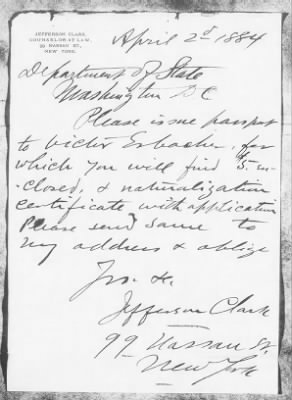 JEFFERSON CLARK,
COUNSELOR AT LAW,
99 NASSAU ST.,
NEW YORK.
April 2d 1884
Department of State
Washington DC
Please issue passport
to Victor Erbacher, for
which you will find $5. in-
closed, & naturalization
certificate with application
Please send same to
my address & oblige
Yrs. &.
Jefferson Clark
99 Nassau St.
New York